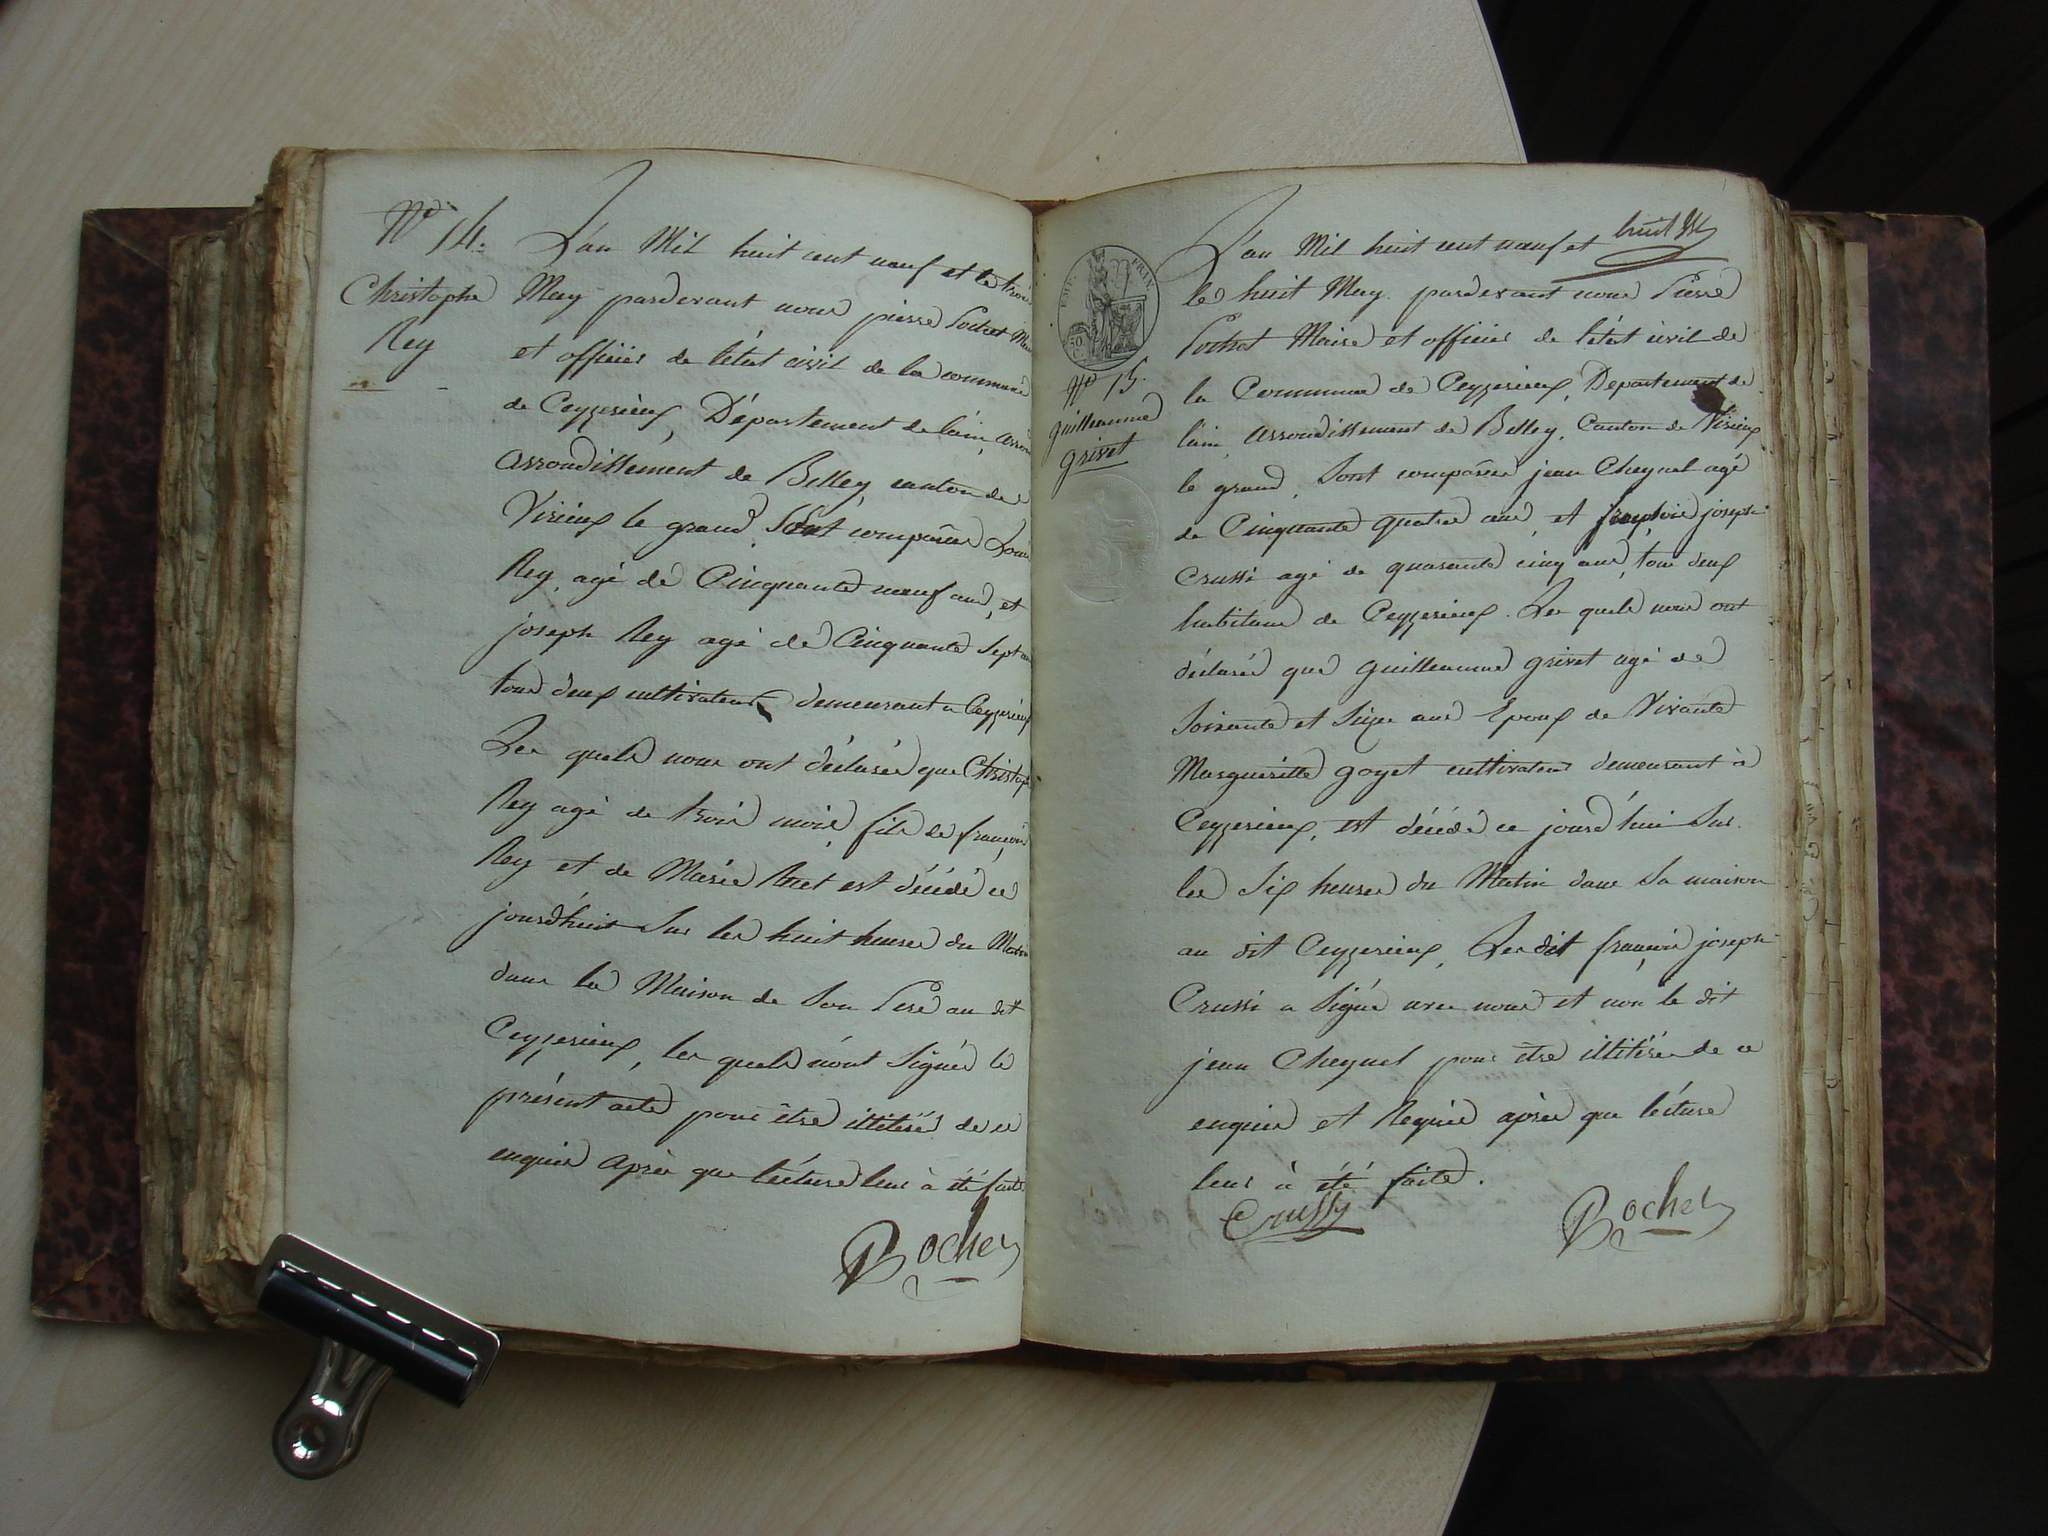 N° 14.
Christophe
Rey
L'an Mil huit cent neuf et le trois
May pardevant nous pierre Pochet Mai
et officier de l'état civil de la commune
de Ceyzerieux, Département de lain, arron
arrondissement de Belley, canton de
Virieux le grand, Sont comparus Louis
Rey, agé de Cinquante neuf ans, et
joseph Rey agé de Cinquante Sept ans
tous deux cultivateurs demeurant a Ceyzerieux
Les quels nous ont déclarés que Christophe
Rey agé de trois mois, fils de françois
Rey et de Marie est décédé ce
jourdhuit Sur les huit heures du Matin
dans la Maison de Son Pere au dit
Ceyzerieux, les quels n'ont Signés le
présent acte pour être illitérés de ce
enquis après que lécture leur à été faite
Rochet
huit
EMP. FRAN.
50
N° 15.
guilleaume
grivet
L'an Mil huit cent neuf et
le huit May. pardevant nous Pierre
Pochet Maire et officier de l'etat civil de
la Commune de Ceyzerieux, Departement de
lain, arrondissement de Belley, Canton de Virieux
le grand, Sont comparus jean Cheynel agé
de Cinquante quatre ans, et françois joseph
Crussi agé de quarante cinq ans, tous deux
habitans de Ceyzerieux. Les quels nous ont
déclarés que guilleaume grivet agé de
Soixante et Seize ans Epoux de Vivante
Margueritte goyet cultivateur demeurant à
Ceyzerieux, est décédé ce jourd'hui Sur
les Six heures du Matin dans Sa maison
au dit Ceyzerieux, Ledit françois joseph
Crussi a Signé avec nous et non le dit
jean Cheynel pour être illitérés de ce
enquis et Requis après que lécture
leur à été faite.
Crussy
Rochet